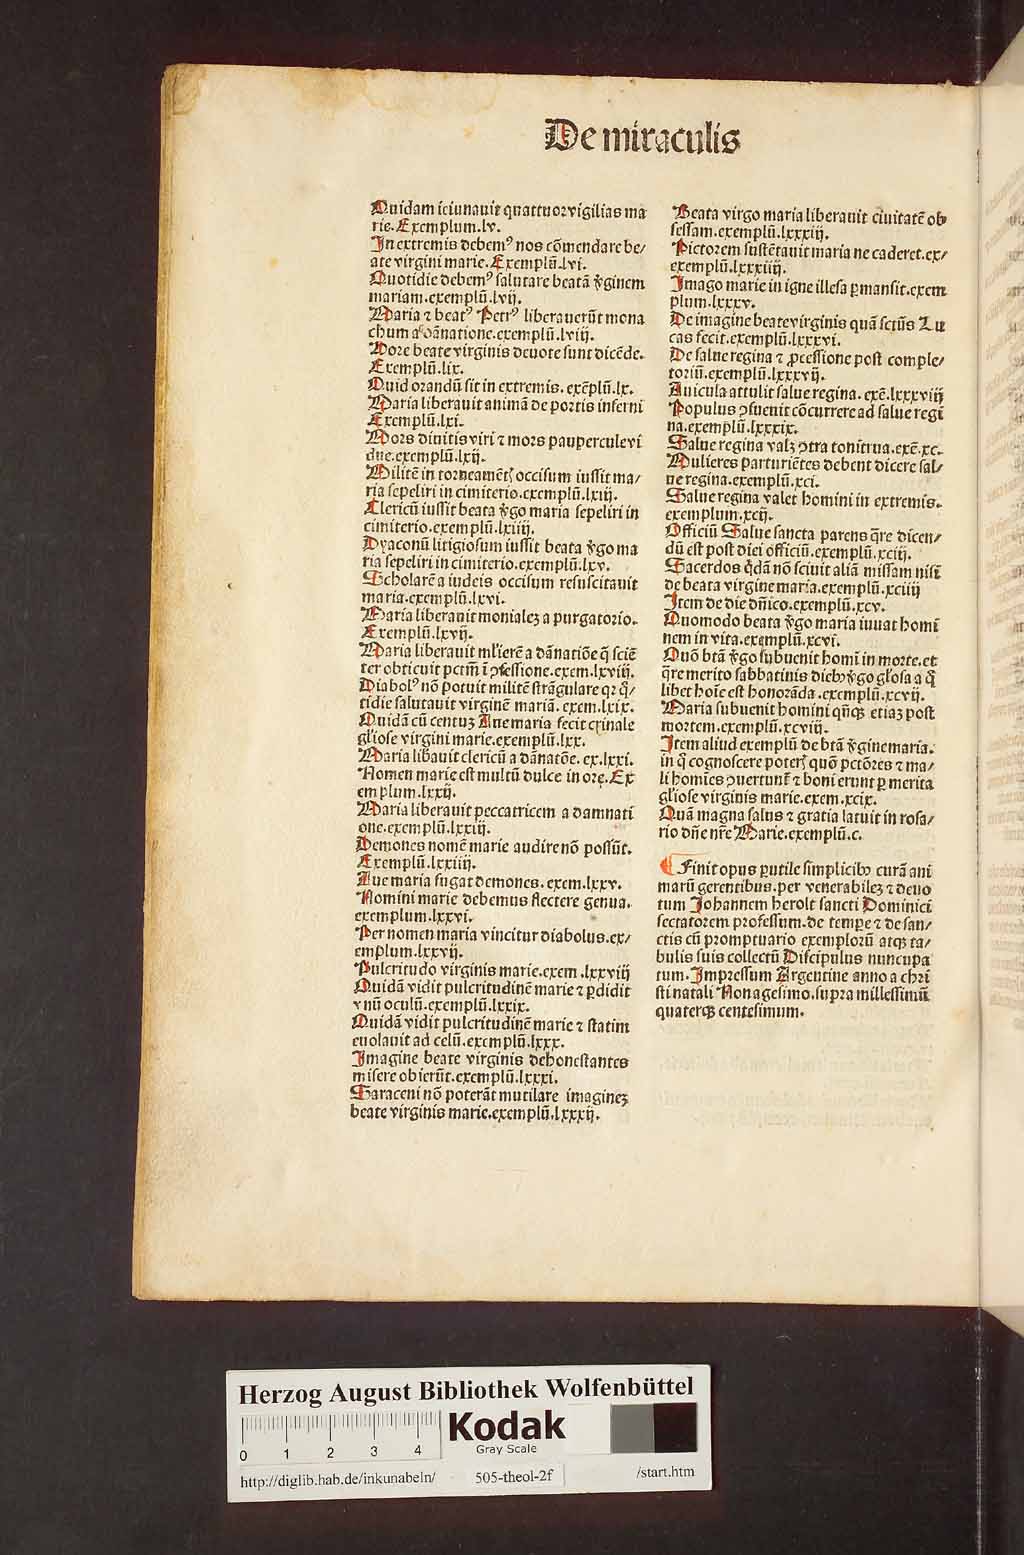 De miraculis
Quidam ieiunauit quattuor vigilias ma
rie. Exemplum.lv.
In extremis debemꝰ nos cōmendare be/
ate virgini marie. Exemplū.lvi.
Quotidie debemꝰ salutare beatā v̓ginem
mariam.exemplū.lvij.
Maria ⁊ beatꝰ Petrꝰ liberauerūt mona
chum a dānatione.exemplū.lviij.
Hore beate virginis deuote sunt dicēde.
Exemplū.lix.
Quid orandū sit in extremis. exēplū.lx.
Maria liberauit animā de portis inferni
Exemplū.lxi.
Mors diuitis viri ⁊ mors paupercule vi
due.exemplū.lxij.
Militē in torneamētꝭ occisum iussit ma/
ria sepeliri in cimiterio.exemplū.lxiij.
Clericū iussit beata v̓go maria sepeliri in
cimiterio.exemplū.lxiiij.
Dyaconū litigiosum iussit beata v̓go ma
ria sepeliri in cimiterio.exemplū.lxv.
Scholarē a iudeis occisum resuscitauit
maria.exemplū.lxvi.
Maria liberauit monialeʒ a purgatorio.
Exemplū.lxvij.
Maria liberauit ml̓ierē a dānatiōe q̄ sciē
ter obticuit pctm̄ ī ꝯfessione.exem.lxviij.
Diabolꝰ nō potuit militē strāgulare qꝛ q̊/
tidie salutauit virginē mariā. exem.lxix.
Quidā cū centuʒ Aue maria fecit crinale
gl̓iose virgini marie.exemplū.lxx.
Maria lib̓auit clericū a dānatōe. ex.lxxi.
Nomen marie est multū dulce in ore. Ex
emplum.lxxij.
Maria liberauit peccatricem a damnati
one.exemplū.lxxiij.
Demones nomē marie audire nō possūt.
Exemplū.lxxiiij.
Aue maria fugat demones. exem.lxxv.
Nomini marie debemus flectere genua.
exemplum.lxxvi.
Per nomen maria vincitur diabolus.ex/
emplum.lxxvij.
Pulcritudo virginis marie.exem.lxxviij
Quidā vidit pulcritudinē marie ⁊ ꝑdidit
vnū oculū.exemplū.lxxix.
Quidā vidit pulcritudinē marie ⁊ statim
euolauit ad celū.exemplū.lxxx.
Imagine beate virginis dehonestantes
misere obierūt.exemplū.lxxxi.
Saraceni nō poterāt mutilare imagineʒ
beate virginis marie.exemplū.lxxxij.
Beata virgo maria liberauit ciuitatē ob
sessam.exemplū.lxxxiij.
Pictorem sustētauit maria ne caderet.ex/
exemplū.lxxxiiij.
Imago marie in igne illesa ꝑmansit.exem
plum.lxxxv.
De imagine beate virginis quā sctūs Lu
cas fecit.exemplū.lxxxvi.
De salue regina ⁊ ꝓcessione post comple/
toriū.exemplū.lxxxvij.
Auicula attulit salue regina. exē.lxxxviij
Populus ꝯsueuit cōcurrere ad salue regi
na.exemplū.lxxxix.
Salue regina valʒ ꝯtra tonitrua.exē.xc.
Mulieres parturiētes debent dicere sal/
ue regina.exemplū.xci.
Salue regina valet homini in extremis.
exemplum.xcij.
Officiū Salue sancta parens q̄re dicen/
dū est post diei officiū.exemplū.xciij.
Sacerdos q̇dā nō sciuit aliā missam nisi
de beata virgine maria.exemplū.xciiij
Item de die dn̄ico.exemplū.xcv.
Quomodo beata v̓go maria iuuat homi
nem in vita.exemplū.xcvi.
Quō btā v̓go subuenit homī in morte.et
q̄re merito sabbatinis dieb⁹ v̓go gl̓osa a q̊
libet hoīe est honorāda.exemplū.xcvij.
Maria subuenit homini qn̄qꝫ etiaʒ post
mortem.exemplū.xcviij.
Item aliud exemplū de btā v̓gine maria.
in q̊ cognoscere poterꝭ quō pctōres ⁊ ma/
li homīes ꝯuertunt̄ ⁊ boni erunt ꝑ merita
gl̓iose virginis marie.exem.xcix.
Quā magna salus ⁊ gratia latuit in rosa/
rio dn̄e nr̄e Marie.exemplū.c.
¶ Finit opus ꝑutile simplicib⁹ curā ani
marū gerentibus.per venerabileʒ ⁊ deuo
tum Johannem herolt sancti Dominici
sectatorem professum.de tempe ⁊ de san/
ctis cū promptuario exemplorū atqꝫ ta/
bulis suis collectū Discipulus nuncupa
tum. Impressum Argentine anno a chri
sti natali Nonagesimo.supra millesimū
quaterqꝫ centesimum.
Herzog August Bibliothek Wolfenbüttel
0 1 2 3 4
Kodak
Gray Scale
http://diglib.hab.de/inkunabeln/ 505-theol-2f /start.htm